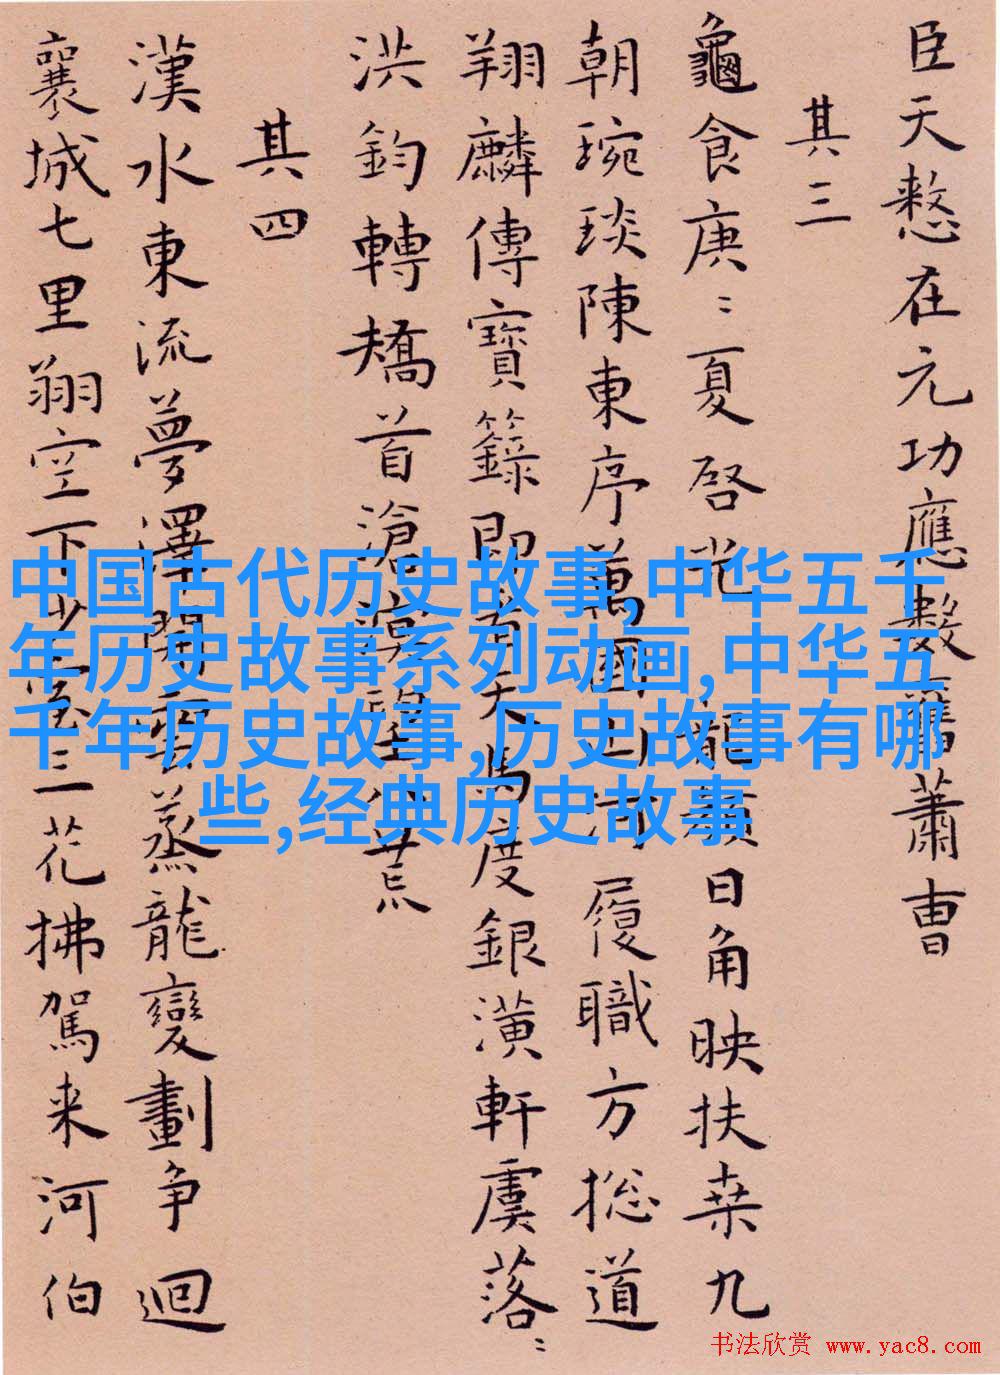 臣天憗在元功應數舊蕭曹
其三
龜食庚〻夏啓光龍顏日角映扶桒九
朝琬琰陳東序萬國山河履職方揔道
翔麟傳寶籙即看天馬度銀潢軒虞落〻
洪鈞轉矯首滄溟望八荒
其四
漢水東流夢澤開雲蒸龍變劃争迴
襄城七里翔空下少室三花拂駕来河伯
中国古代历史故事,中华五千
年历史故事系列动画,中华五
千年历史故事,历史故事有哪
些,经典历史故事
书法欣赏 www.yac8.com